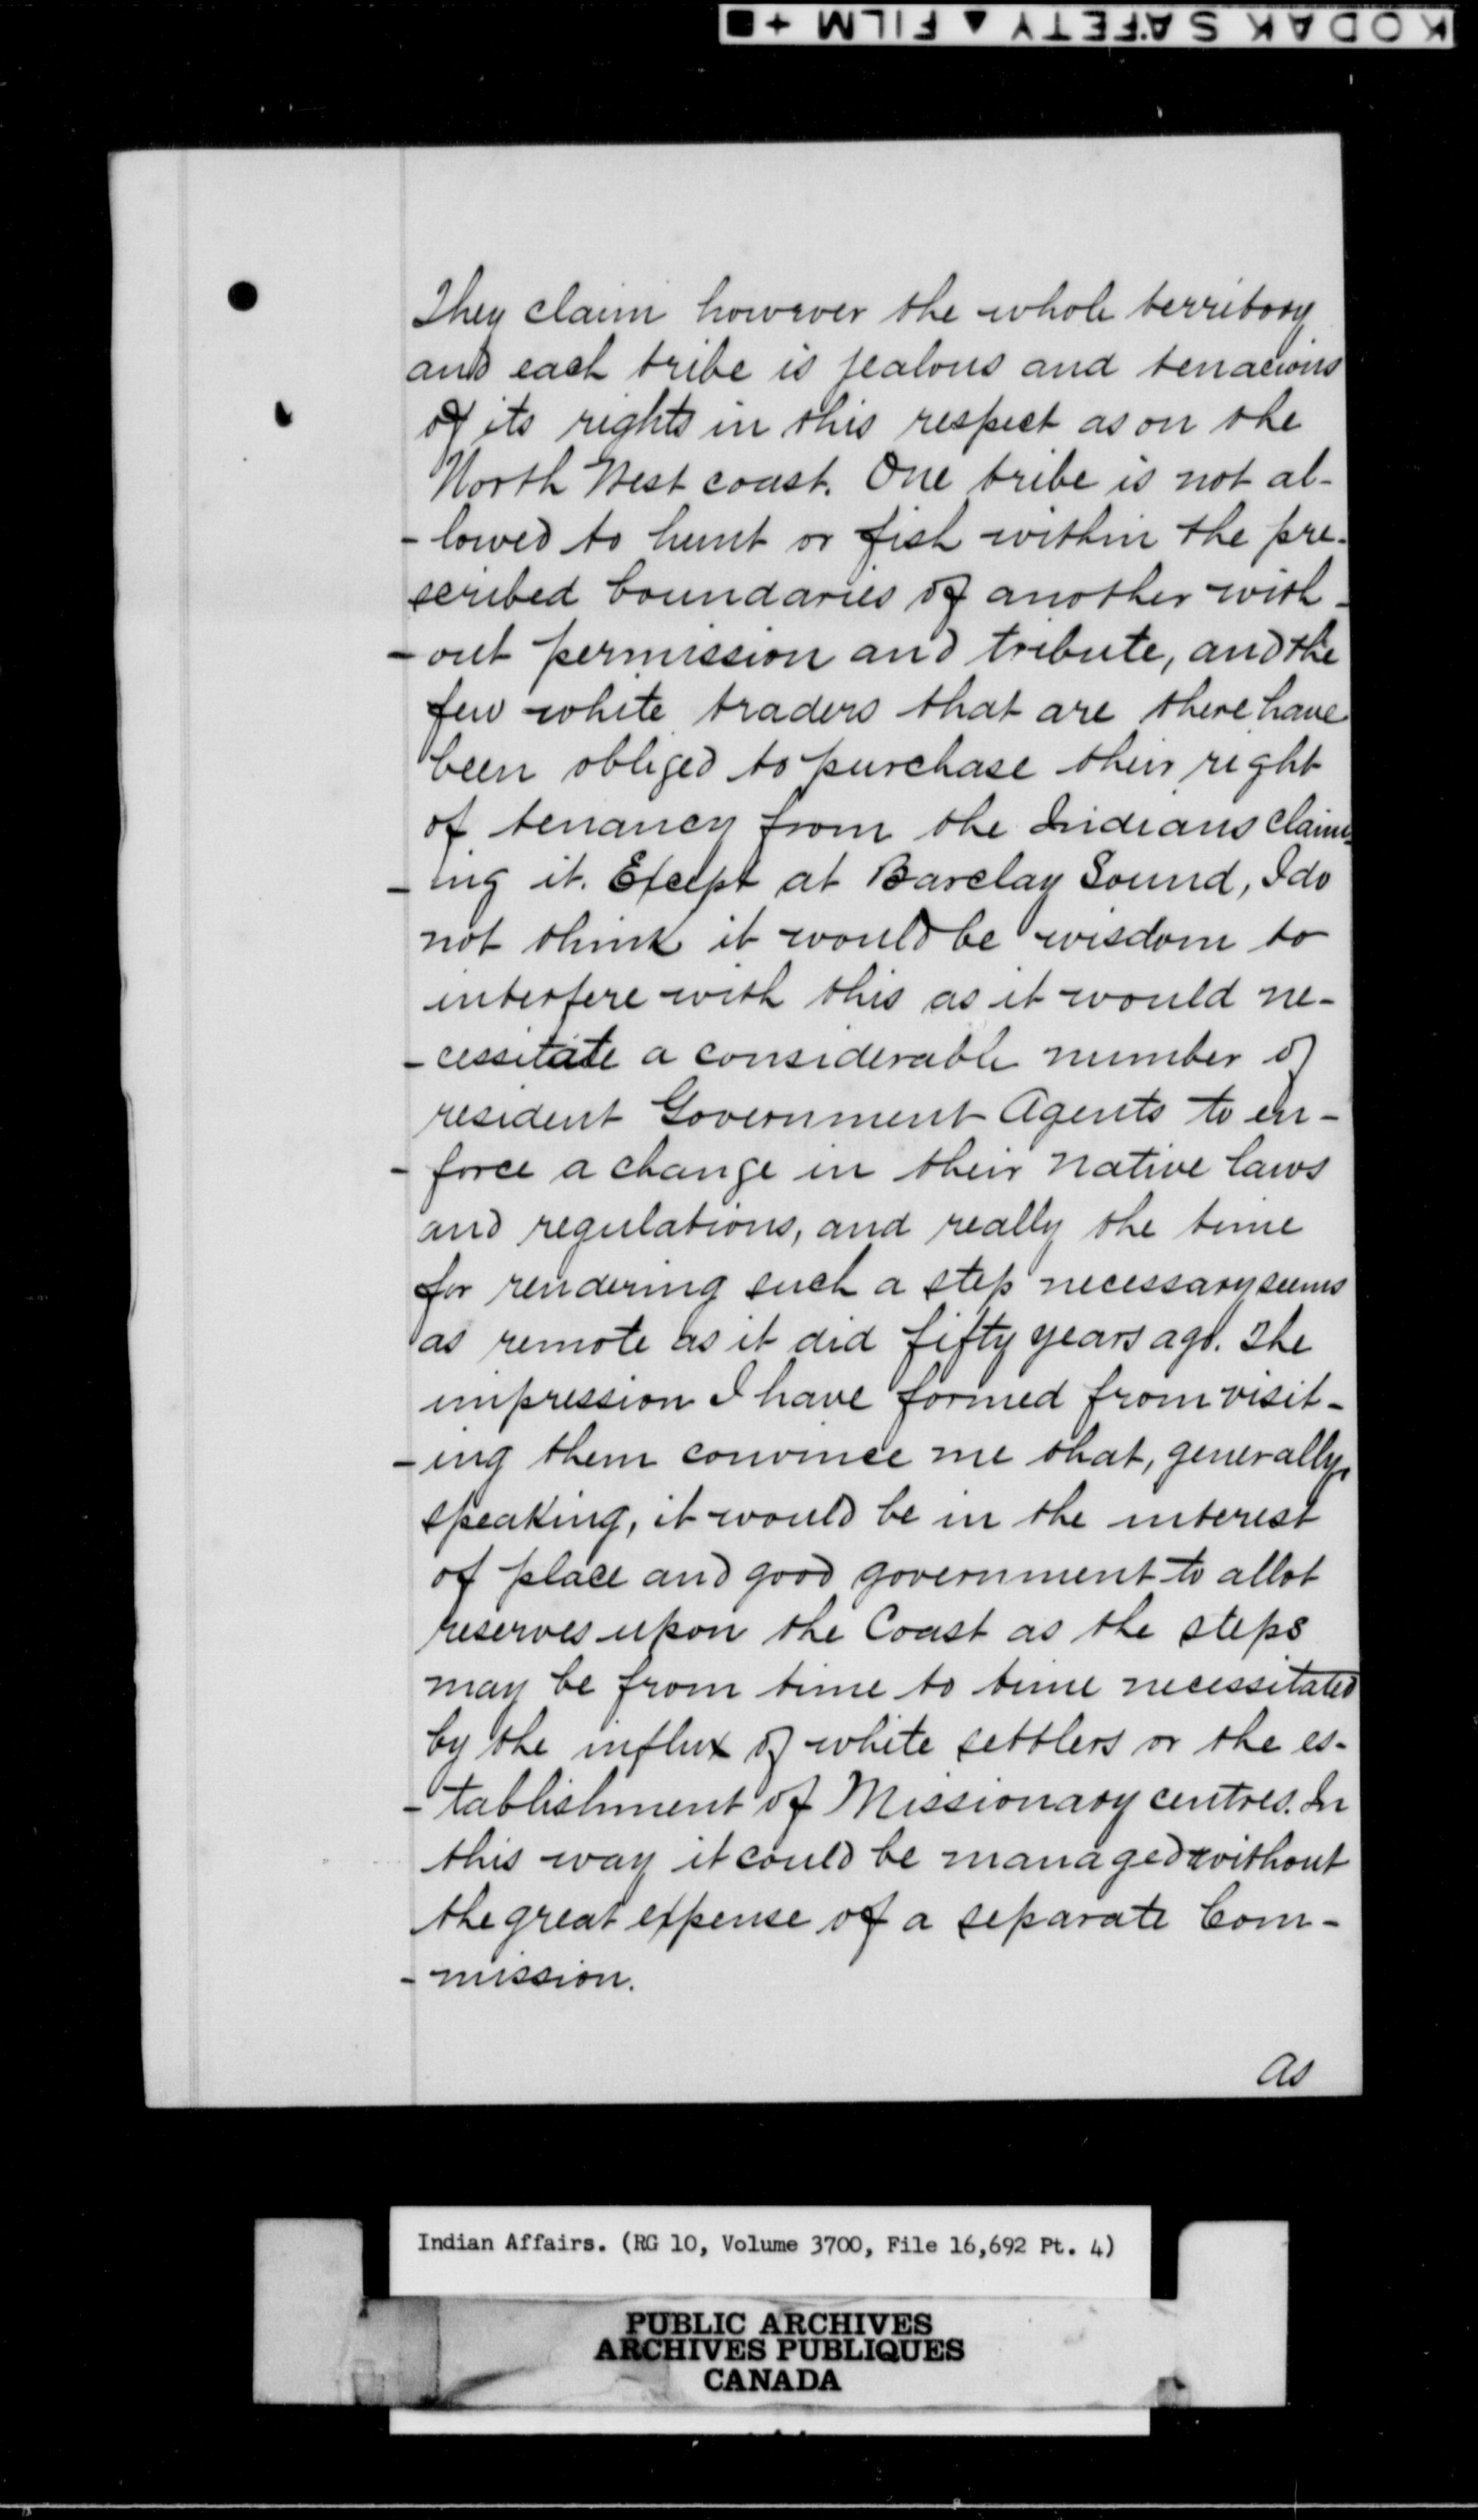 KODAK SAFETY ▲ FILM + ■
They claim however the whole territory
and each tribe is jealous and tenacious
of its rights in this respect as on the
North West coast. One tribe is not al-
- lowed to hunt or fish within the pre-
scribed boundaries of another with-
- out permission and tribute, and the
few white traders that are there have
been obliged to purchase their right
of tenancy from the Indians claim-
- ing it. Except at Barclay Sound, I do
not think it would be wisdom to
interfere with this as it would ne-
- cessitate a considerable number of
resident Government Agents to en-
- force a change in their native laws
and regulations, and really the time
for rendering such a step necessary seems
as remote as it did fifty years ago. The
impression I have formed from visit-
- ing them convince me that, generally
speaking, it would be in the interest
of place and good government to allot
reserves upon the Coast as the steps
may be from time to time necessitated
by the influx of white settlers or the es-
- tablishment of Missionary centres. In
this way it could be managed without
the great expense of a separate Com-
- mission.
As
Indian Affairs. (RG 10, Volume 3700, File 16,692 Pt. 4)
PUBLIC ARCHIVES
ARCHIVES PUBLIQUES
CANADA